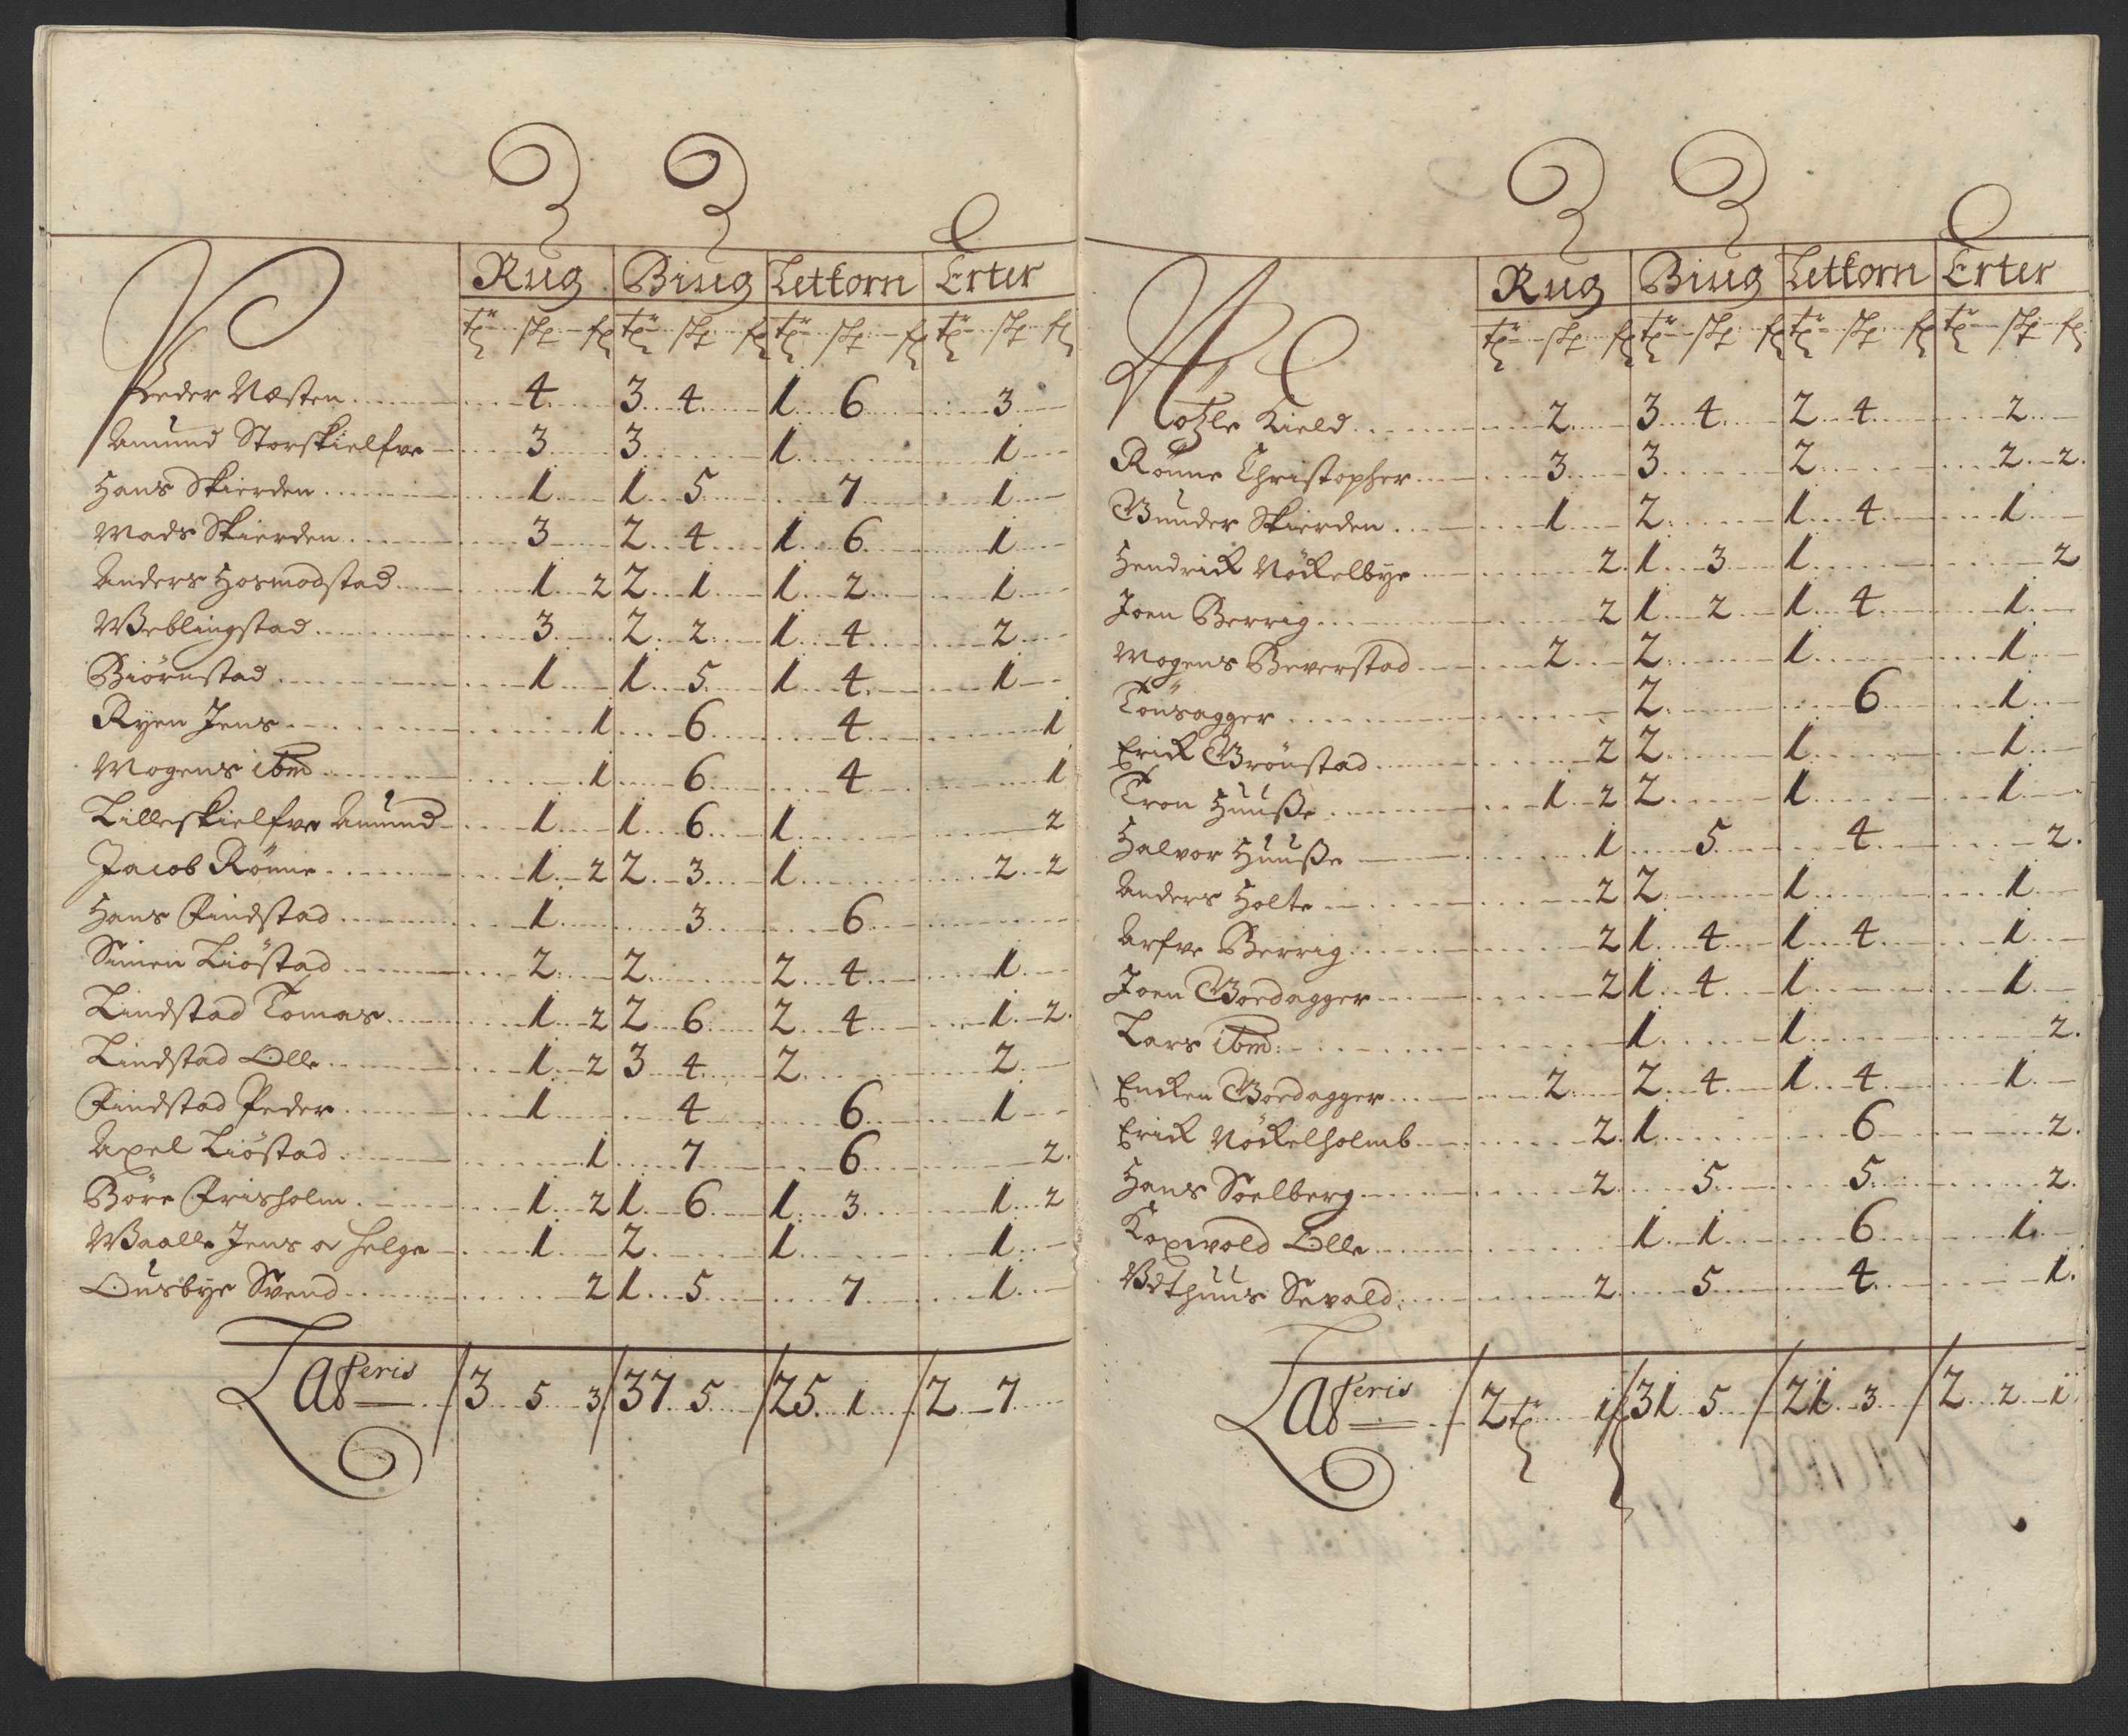 Rug Biug Lettorn Erter
tr skp fr tr skp fr tr skp fr tr skp fr
Peder Næsten 4 3 4 1 6 3
Amund Storskielfve 3 3 1 1
Hans Skierden 1 1 5 7 1
Mads Skierden 3 2 4 1 6 1
Anders Hosmodstad 1 2 2 1 1 2 1
Weblingstad 3 2 2 1 4 2
Biörnstad 1 1 5 1 4 1
Ryen Jens 1 6 4 1
Mogens ibm 1 6 4 1
Lilleskielfve Amund 1 1 6 1 2
Jacob Rönne 1 2 2 3 1 2 2
Hans Findstad 1 3 6
Simen Liöstad 2 2 2 4 1
Lindstad Tomas 1 2 2 6 2 4 1 2
Lindstad Olle 1 2 3 4 2 2
Findstad Peder 1 4 6 1
Axel Liöstad 1 7 6 2
Böre Frisholm 1 2 1 6 1 3 1 2
Waalle Jens o Helge 1 2 1 1
Ousbye Svend 2 1 5 7 1
Lateris / 3 5 3 / 37 5 / 25 1 / 2 7
Rug Biug Lettorn Erter
tr skp fr tr skp fr tr skp fr tr skp fr
Kield 2 3 4 2 4 2
Rönne Christopher 3 3 2 2 2
Gunder Skierden 1 2 1 4 1
Hendrick Nöckelbye 2 1 3 1 2
Joen Berrig 2 1 2 1 4 1
Mogens Beverstad 2 2 1 1
Tönsagger 2 6 1
Erick Grönstad 2 2 1 1
Tron Huuße 1 2 2 1 1
Halvor Huuße 1 5 4 2
Anders Holte 2 2 1 1
Arfve Berrig 2 1 4 1 4 1
Joen Goedagger 2 1 4 1 1
Lars ibm 1 1 2
Encken Goedagger 2 2 4 1 4 1
Erick Nöckelholmb 2 1 6 2
Hans Soelberg 2 5 5 2
Koxvold Olle 1 1 6 1
Wethuus Sevald 2 5 4 1
Lateris / 2 tr 1 f / 31 5 / 21 3 / 2 2 1